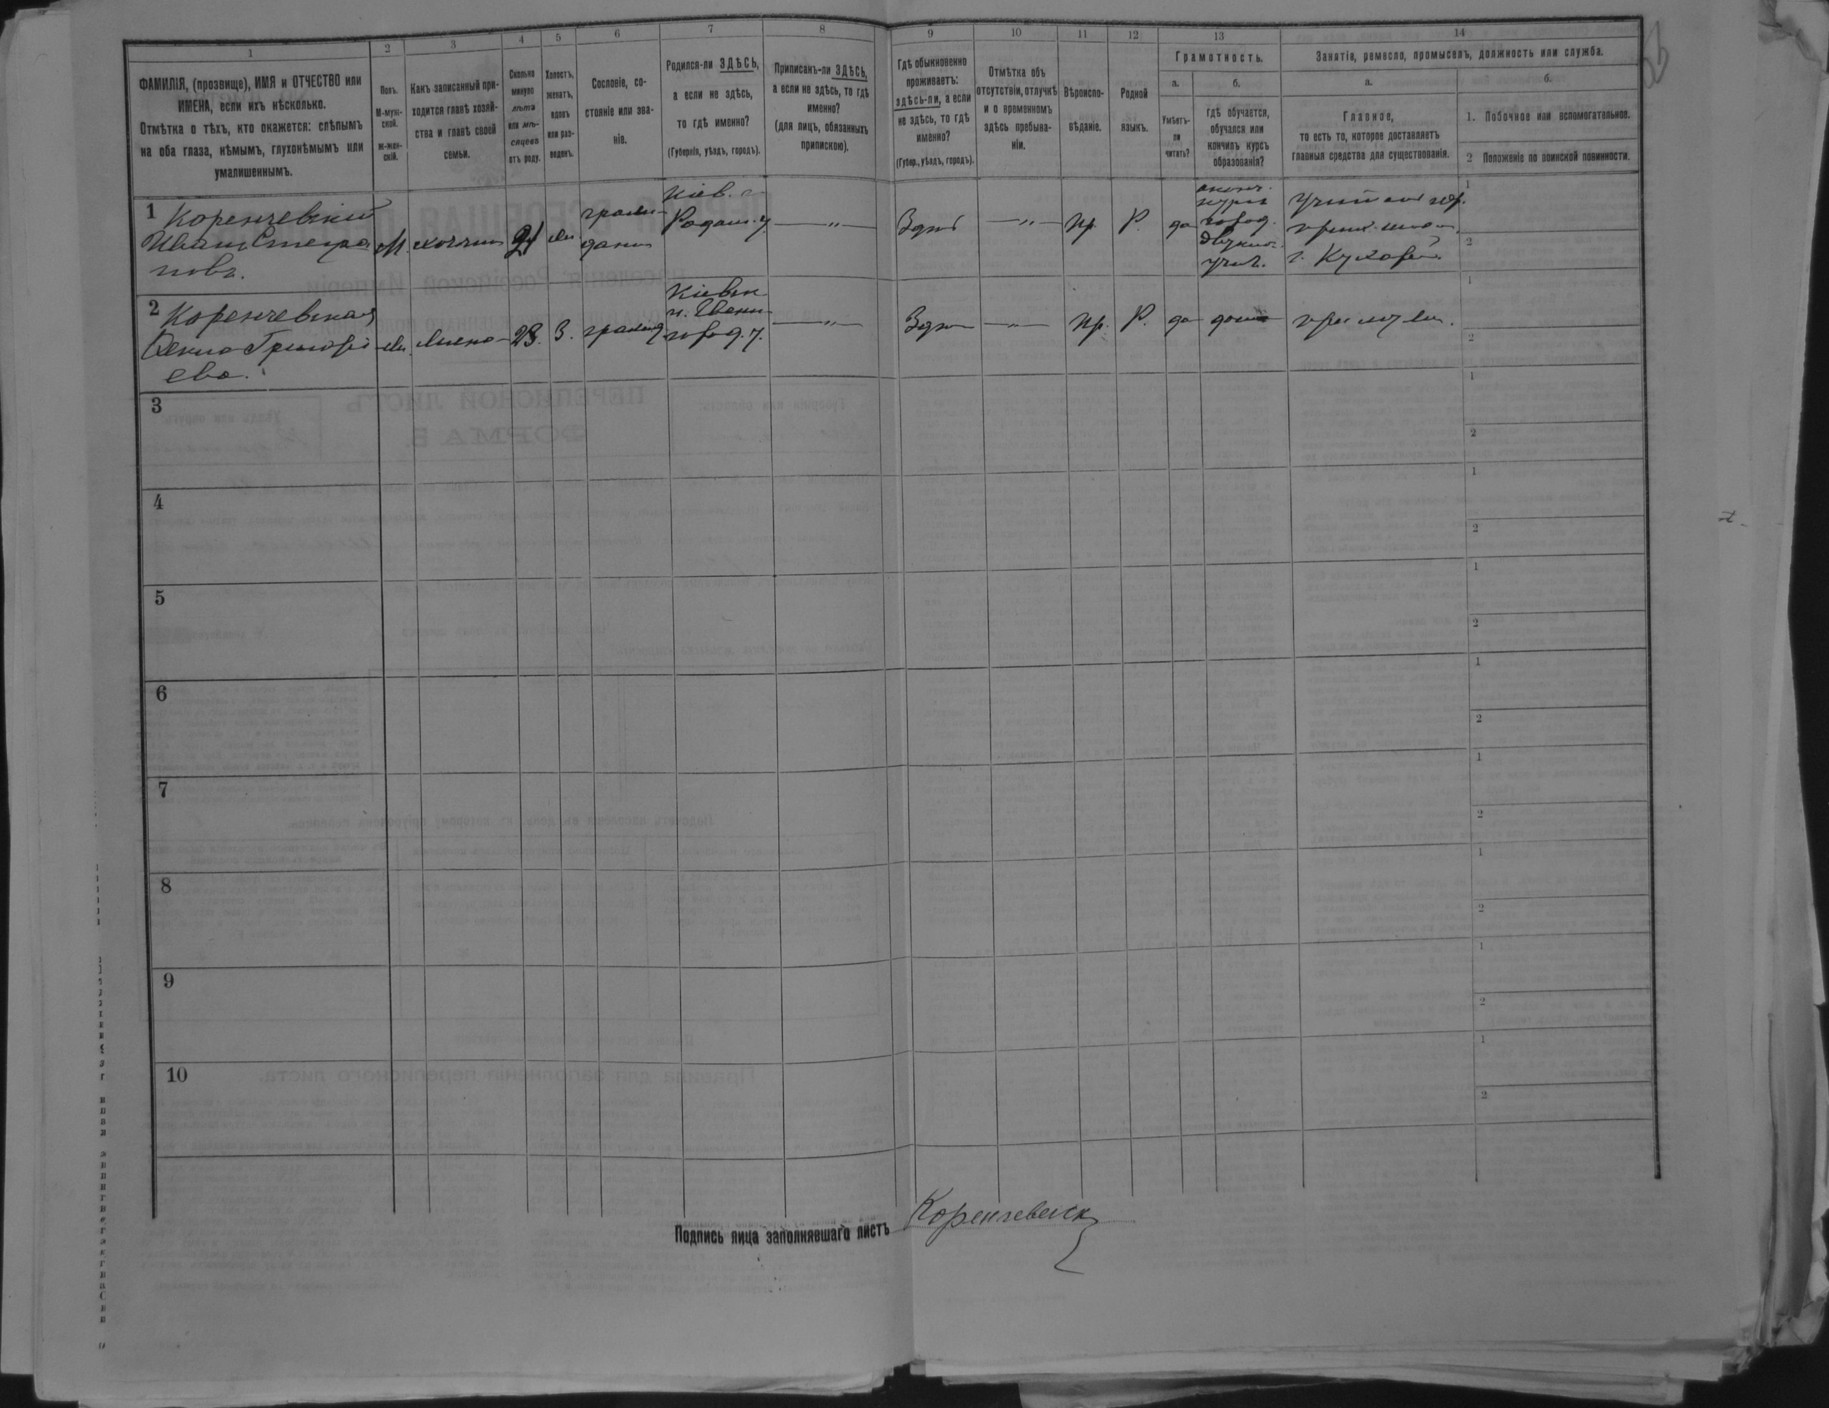 1
2
3
4
5
6
7
8
9
10
11
12
13
14
ФАМИЛІЯ, (прозвище), ИМЯ и ОТЧЕСТВО или
ИМЕНА, если ихъ нѣсколько.
Отмѣтка о тѣхъ, кто окажется: слѣпымъ
на оба глаза, нѣмымъ, глухонѣмымъ или
умалишеннымъ.
Полъ.
М-муж-
ской.
ж-жен-
скій.
Какъ записанный при-
ходится главѣ хозяй-
ства и главѣ своей
семьи.
Сколько
минуло
лѣтъ
или мѣ-
сяцевъ
отъ роду.
Холостъ,
женатъ,
вдовъ
или раз-
веденъ.
Сословіе, со-
стояніе или зва-
ніе.
Родился-ли ЗДѢСЬ,
а если не здѣсь,
то гдѣ именно?
(Губернія, уѣздъ, городъ).
Приписанъ-ли ЗДѢСЬ,
а если не здѣсь, то гдѣ
именно?
(для лицъ, обязанныхъ
припискою).
Гдѣ обыкновенно
проживаетъ:
здѣсь-ли, а если
не здѣсь, то гдѣ
именно?
(Губер., уѣздъ, городъ).
Отмѣтка объ
отсутствіи, отлучкѣ
и о временномъ
здѣсь пребыва-
ніи.
Вѣроиспо-
вѣданіе.
Родной
языкъ.
Грамотность.
а.
Умѣетъ-
ли
читать?
б.
Гдѣ обучается,
обучался или
кончилъ курсъ
образованія?
Занятія, ремесло, промыселъ, должность или служба.
а.
Главное,
то есть то, которое доставляетъ
главныя средства для существованія.
б.
1. Побочное или вспомогательное.
2 Положеніе по воинской повинности.
1 Коренчевскій
Иванъ Степа
новъ.
М.
хозяин
24
граж
дан
Кіев. г.
Радом. у
—"—
Здѣсь
—"—
пр.
Р.
да
оконч.
курсъ
город.
двухкл.
учил.
1
2
2 Коренчевская
Григорі
ева.
жена
23.
З.
гражд
Кіевск
г. Звени
город. у.
—"—
Здѣсь
—"—
пр.
Р.
да
дома
при муж.
1
2
3
1
2
4
1
2
5
1
2
6
1
2
7
1
2
8
1
2
9
1
2
10
1
2
Подпись лица заполнявшаго листъ
Коренчевск